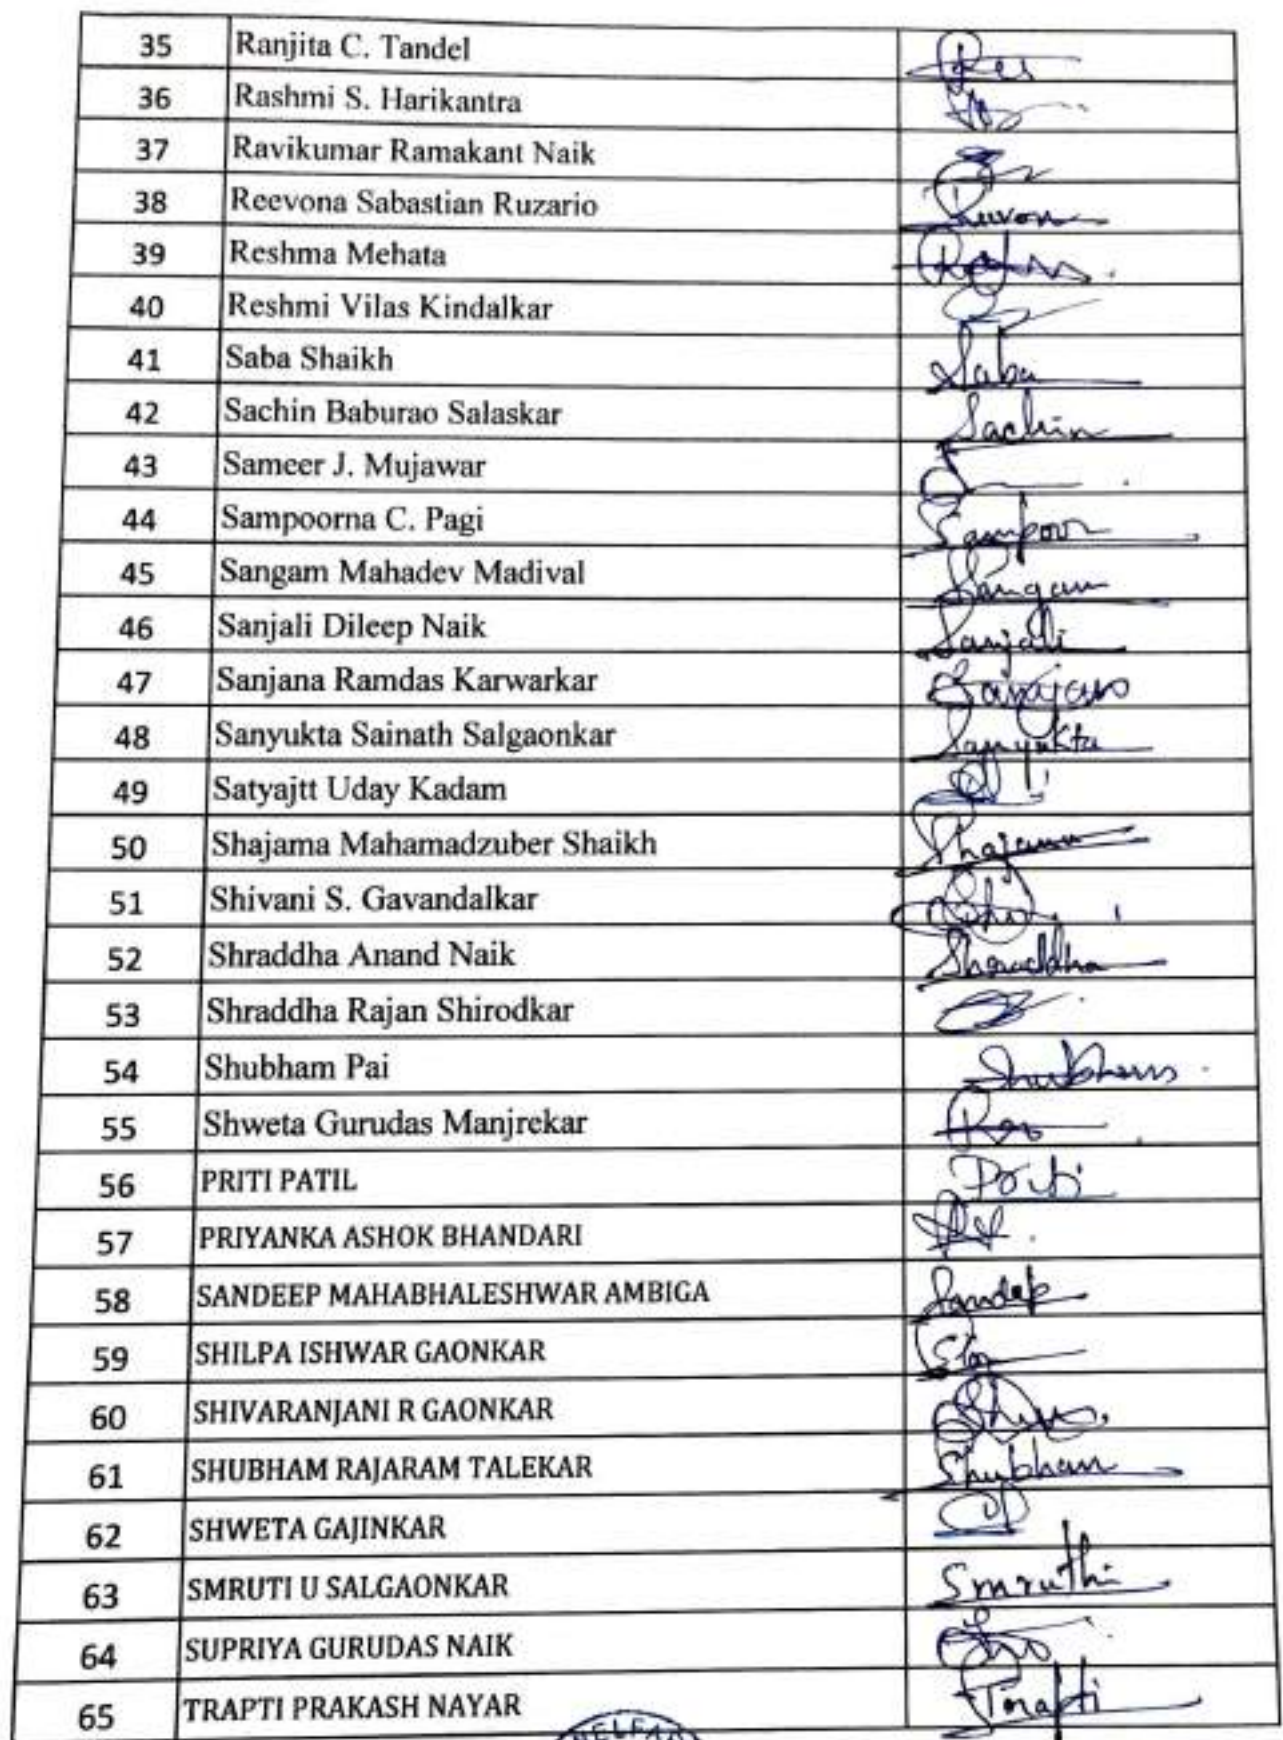 35 Ranjita C. Tandel
36 Rashmi S. Harikantra
37 Ravikumar Ramakant Naik
38 Reevona Sabastian Ruzario
39 Reshma Mehata
40 Reshmi Vilas Kindalkar
41 Saba Shaikh Saba
42 Sachin Baburao Salaskar Sachin
43 Sameer J. Mujawar
44 Sampoorna C. Pagi Sampoor
45 Sangam Mahadev Madival Sangam
46 Sanjali Dileep Naik Sanjali
47 Sanjana Ramdas Karwarkar
48 Sanyukta Sainath Salgaonkar Sanyukta
49 Satyajtt Uday Kadam
50 Shajama Mahamadzuber Shaikh
51 Shivani S. Gavandalkar
52 Shraddha Anand Naik Shraddha
53 Shraddha Rajan Shirodkar
54 Shubham Pai
55 Shweta Gurudas Manjrekar
56 PRITI PATIL Priti
57 PRIYANKA ASHOK BHANDARI
58 SANDEEP MAHABHALESHWAR AMBIGA
59 SHILPA ISHWAR GAONKAR
60 SHIVARANJANI R GAONKAR
61 SHUBHAM RAJARAM TALEKAR
62 SHWETA GAJINKAR
63 SMRUTI U SALGAONKAR Smruthi
64 SUPRIYA GURUDAS NAIK
65 TRAPTI PRAKASH NAYAR Trapti